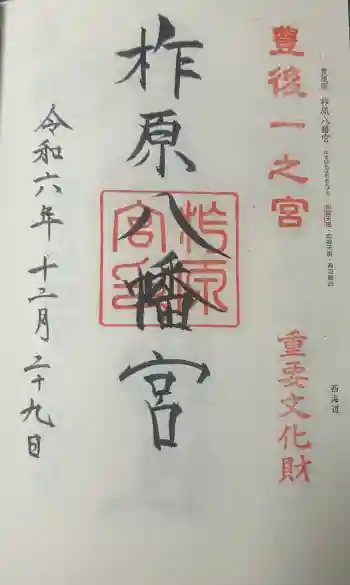 豊後国 柞原八幡宮
西海道
豐後一之宮
重要文化財
柞原八幡宮
令和六年十二月二十九日